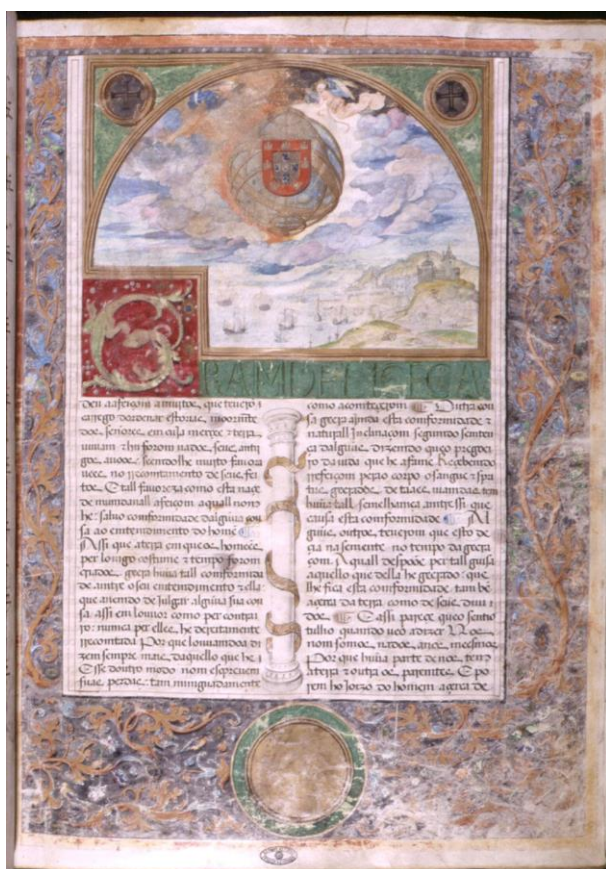 GRAMDE LICEĆA
deu aafeiçom amuitos, que teuerō
carrego dordenar estorias, moormte
dos, señores, em cuja merçee z terra
uiuiam z hu forom nados, seus, anti
gos, auoos, seendolhe muito fauora
uees, no rrecontamento de seus, fei
tos, E tall fauoreza como esta naçe
de mundanall afeiçom aquall nom
he saluo comformidade dalguūa cou
sa ao entendimento do homē
Assi que aterra em que os, homēes,
per longo costume z tempo forom
criados, geera huūa tall comformida
de antre oseu entendimento z ella
que auendo de julgar algūua sua cou
sa assi em louuor como per contrai
ro nunca per elles, he dereitamente
rrecontada Por que louuamdoa di
zem sempre mais, daquello que he
E sse doutro modo nom espreuem
suas, perdas, tam minguadamente
como acomteçerom Outra cou
sa geera ajnda esta comformidade z
naturall jnclinaçom segundo senten
ça dalguūs, dizendo queo pregoei
ro da uida que he afame Reçebendo
rrefeiçom pera o corpo osangue z spri
tus, geerados, de taaes, uiamdas, tem
huūa tall semelhamça antressi que
causa esta comformidade Al
guūs, outros, teuerom que esto de
çia na semente no tempo da geera
çom, Aquall despoōe per tall guisa
aquello que della he geerado que
lhe fica esta comformidade tam bē
açerca da terra como de seus, diui
dos, E assi pareçe queo sentio
tulho quando ueo adizer Nos
nom somos, nados, anos, meesmos,
Por que huūa parte de nos, tem
aterra z outra os, paremtes, E po
rem ho joizo do homem açerca de